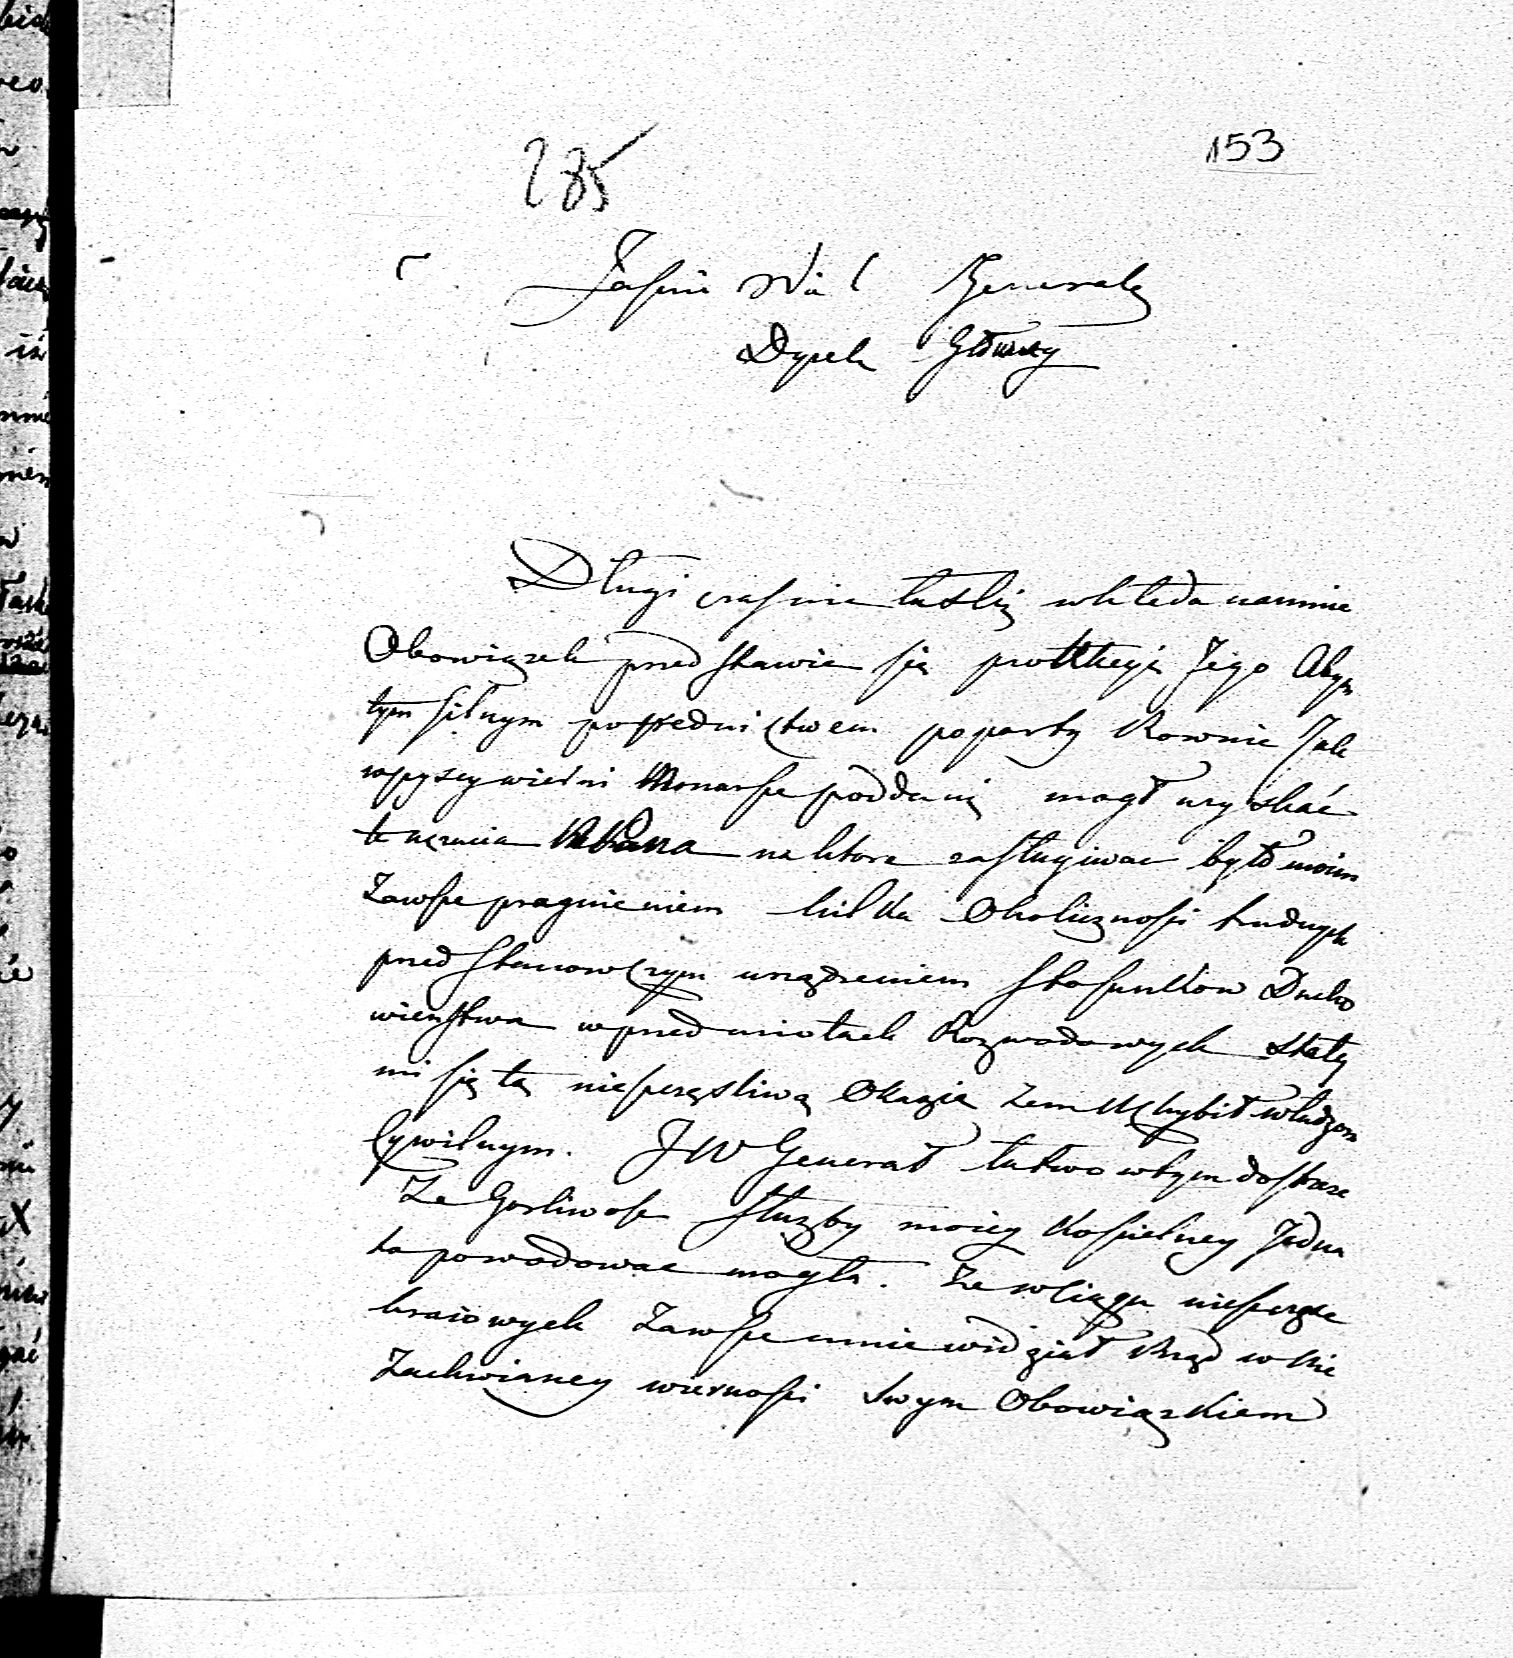 285
153
Jaśnie Wiel Generale
Dyrek Główny
Długi czas nie łaski wkłada namnie
Obowiązek przedstawie się protekcyi Jego Abym
tym silnym posrednictwem poparty Rownie Jak
wszyscy wierni Monarsze poddani mogł uzyskać
te na ktore zasługiwac było moim
Zawsze pragnieniem kilka Okoliczności trudnych
przed stanowczym urządzeniem Stosunkow Ducho
wienstwa wprzedmiotach Rozwodowych stały
mi się tą nieszczęsliwą Okazią żem uchybił władzom
Cywilnym. JW Generał łatwo wtym dostrze
Ze Gorliwość służby moiey Kościelney Jedna
to powodowac mogła. Ze wciągu nieszczęść
kraiowych Zawsze mnie widział Rząd w Nie
Zachwianey wierności swym Obowiązkiem